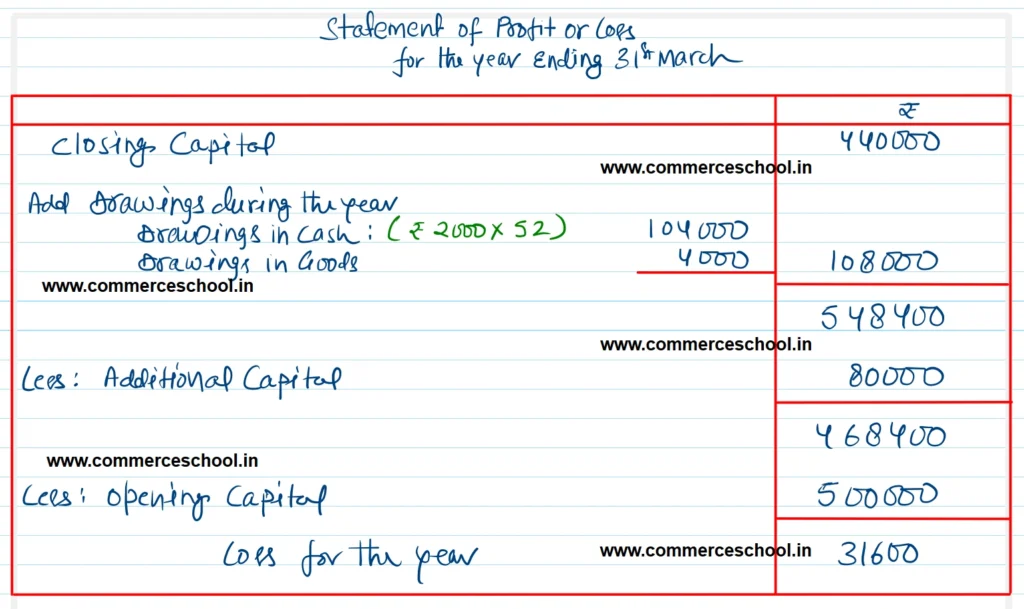 Statement of Profit or Loss
for the year Ending 31st March
₹
Closing Capital 440000
www.commerceschool.in
Add Drawings during the year
Drawings in Cash : (₹ 2000 x 52) 104000
Drawings in Goods 4000 108000
www.commerceschool.in
548400
www.commerceschool.in
Less : Additional Capital 80000
468400
www.commerceschool.in
Less : Opening Capital 500000
Loss for the year www.commerceschool.in 31600